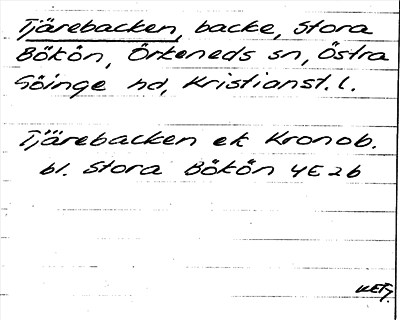 Tjärebacken, backe, Stora
Bökön, Örkeneds sn, Östra
Göinge hd, Kristianst. l.
Tjärebacken ek Kronob.
bl. Stora Bökön 4E2b